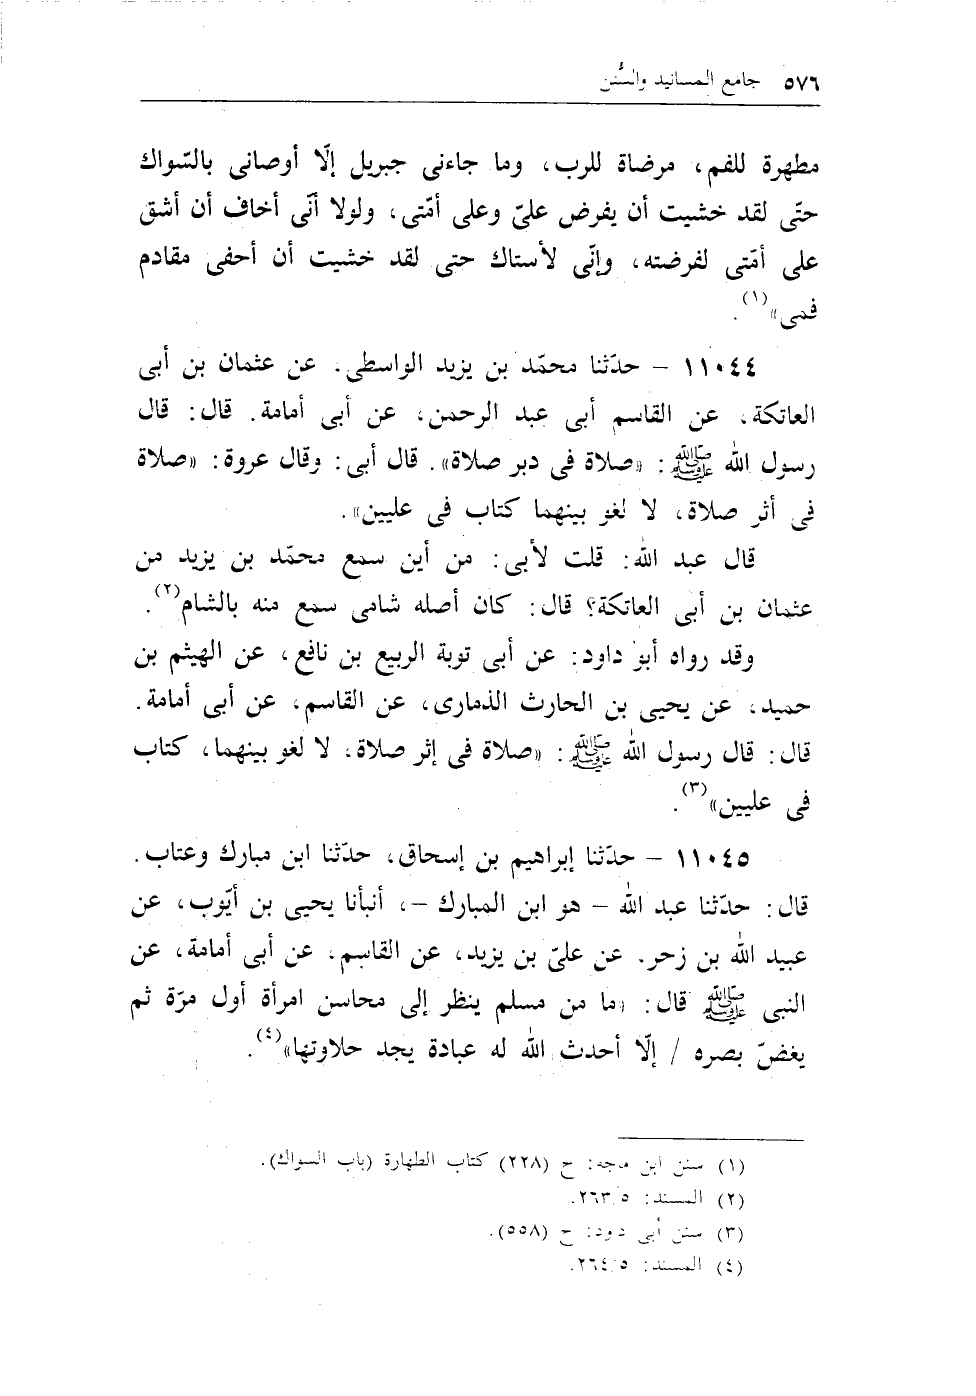 ٥٧٦ جامع المسانيد والسُّنن
مطهرة للفم، مرضاة للرب، وما جاءنى جبريل إلّا أوصانى بالسّواك
حتّى لقد خشيت أن يفرض علىّ وعلى أمّتى، ولولا أنّى أخاف أن أشق
على أمّتى لفرضته، وإنّى لأستاك حتى لقد خشيت أن أحفى مقادم
فمى»(١).
١١٠٤٤ – حدّثنا محمّد بن يزيد الواسطى، عن عثمان بن أبى
العاتكة، عن القاسم أبى عبد الرحمن، عن أبى أمامة. قال: قال
رسول الله ﷺ: «صلاة فى دبر صلاة». قال أبى: وقال عروة: «صلاة
فى أثر صلاة، لا لغو بينهما كتاب فى عليين».
قال عبد الله: قلت لأبى: من أين سمع محمّد بن يزيد من
عثمان بن أبى العاتكة؟ قال: كان أصله شامى سمع منه بالشام(٢).
وقد رواه أبو داود: عن أبى توبة الربيع بن نافع، عن الهيثم بن
حميد، عن يحيى بن الحارث الذمارى، عن القاسم، عن أبى أمامة.
قال: قال رسول الله ﷺ: «صلاة فى إثر صلاة، لا لغو بينهما، كتاب
فى عليين»(٣).
١١٠٤٥ – حدّثنا إبراهيم بن إسحاق، حدّثنا ابن مبارك وعتاب.
قال: حدّثنا عبد الله – هو ابن المبارك –، أنبأنا يحيى بن أيّوب، عن
عبيد الله بن زحر. عن علىّ بن يزيد، عن القاسم، عن أبى أمامة، عن
النبى ﷺ قال: «ما من مسلم ينظر إلى محاسن امرأة أول مرّة ثم
يغضّ بصره / إلّا أحدث الله له عبادة يجد حلاوتها»(٤).
(١) سنن ابن ماجه: ح (٢٢٨) كتاب الطهارة (باب السواك).
(٢) المسند: ٢٦٣/٥.
(٣) سنن أبى دود: ح (٥٥٨).
(٤) المسند: ٢٦٤/٥.